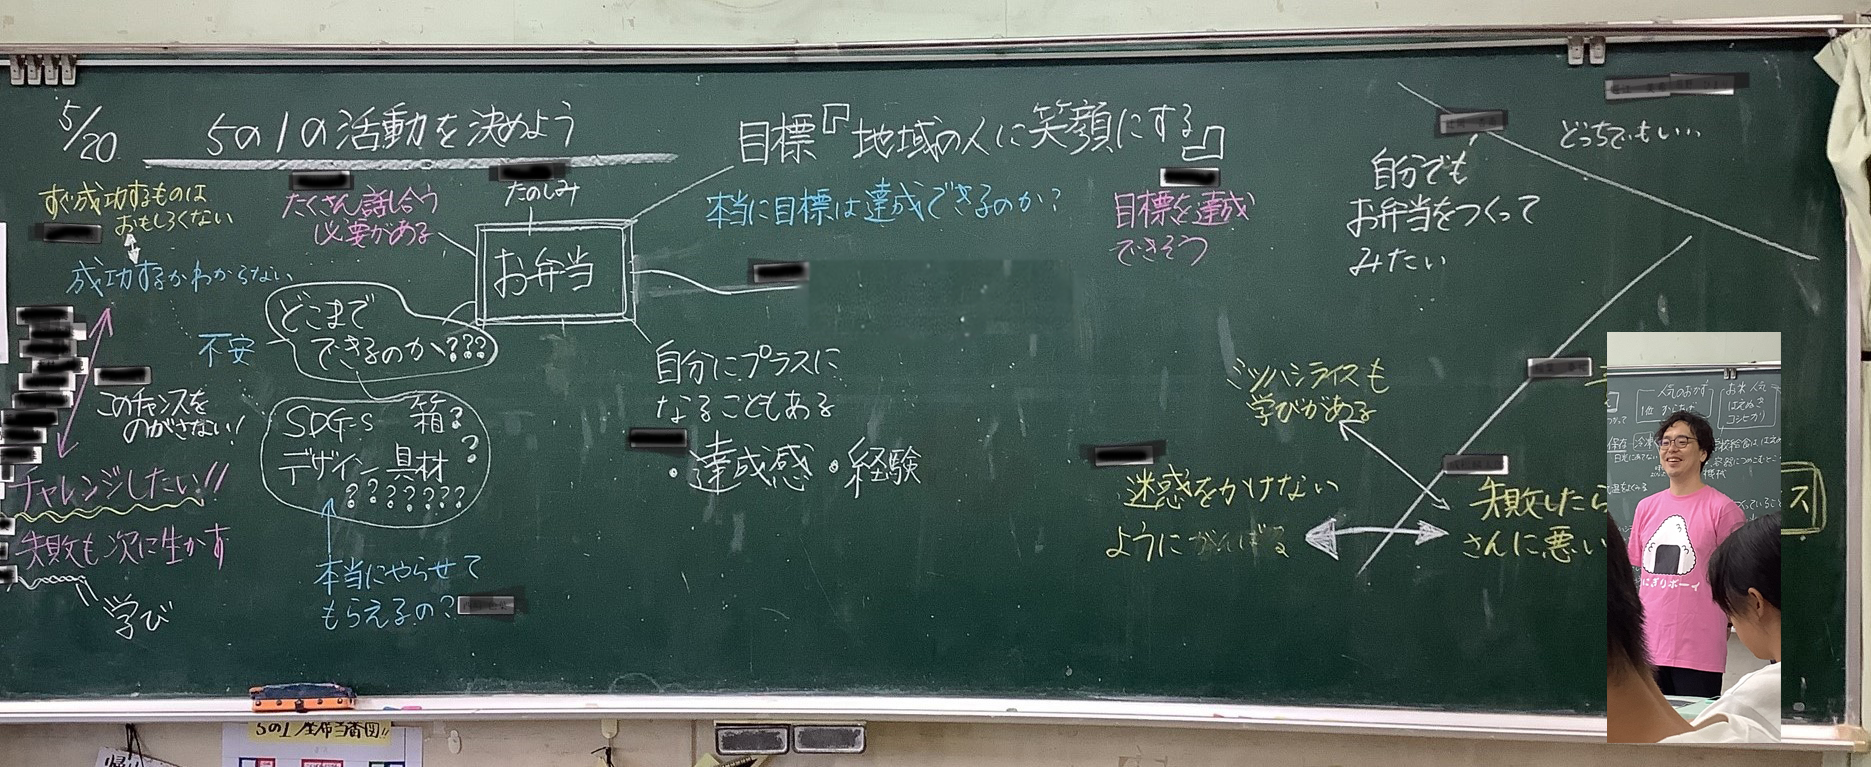 5/20
5の1の活動を決めよう
目標『地域の人に笑顔にする』
すぐ成功するものは
おもしろくない
成功するかわからない
このチャンスを
のがさない!
チャレンジしたい!!
失敗も次に生かす
学び
たくさん話し合う
必要がある
たのしみ
お弁当
どこまで
できるのか???
不安
SDGs 箱?
デザイン 具材?
???????
本当にやらせて
もらえるの?
本当に目標は達成できるのか?
自分にプラスに
なることもある
・達成感・経験
目標を達成
できそう
自分でも
お弁当をつくって
みたい
どっちでもいい…
ミツハシライスも
学びがある
迷惑をかけない
ようにがんばる
失敗したら
さんに悪い
ス
人気のおかず
1位 からあげ
お米 人気
はえぬき
コシヒカリ
にぎりボーイ
5の1 座席当番図!!